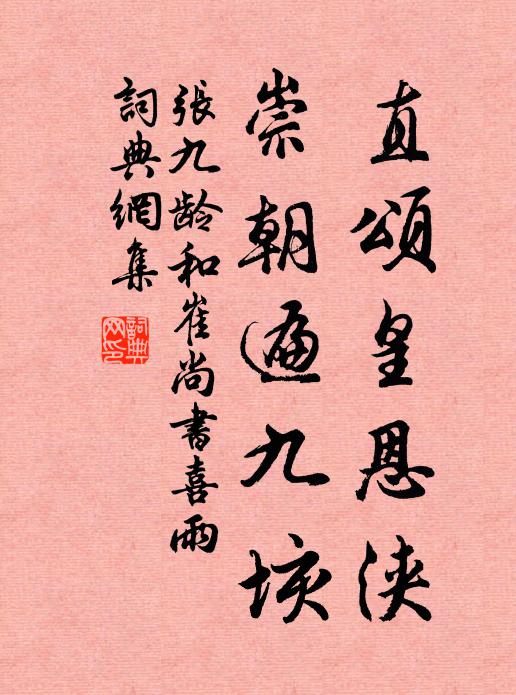 直頌皇恩浹
崇朝遍九垓
張九龄和崔尚書喜雨
詞典網集
詞典網印